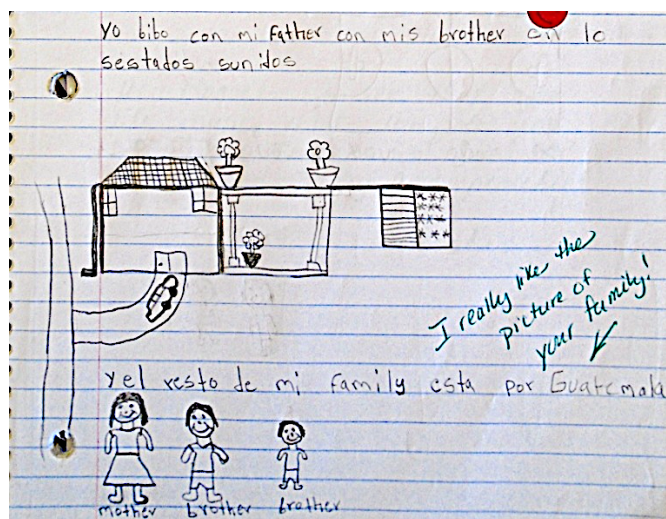 Yo bibo con mi Father con mis brother en lo
sestados sunidos
I really like the
picture of
your family!
y el resto de mi Family esta por Guatemala
mother brother brother